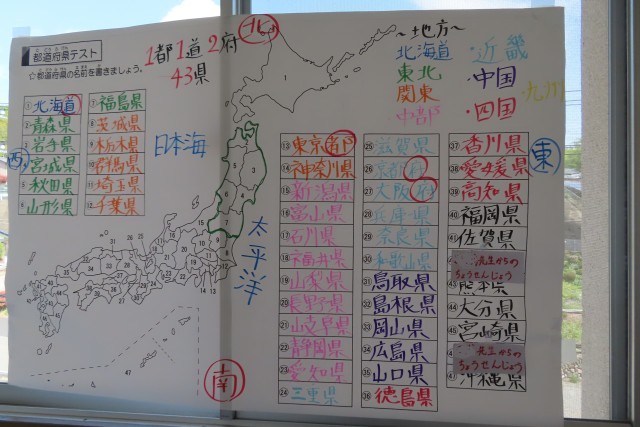 都道府県テスト
☆都道府県の名前を書きましょう。
1都1道2府
43県
北
〜地方〜
北海道
東北
関東
中部
・近畿
・中国
・四国
九州
日本海
太平洋
西
東
南
① 北海道
② 青森県
③ 岩手県
④ 宮城県
⑤ 秋田県
⑥ 山形県
⑦ 福島県
⑧ 茨城県
⑨ 栃木県
⑩ 群馬県
⑪ 埼玉県
⑫ 千葉県
⑬ 東京都
⑭ 神奈川県
⑮ 新潟県
⑯ 富山県
⑰ 石川県
⑱ 福井県
⑲ 山梨県
⑳ 長野県
㉑ 岐阜県
㉒ 静岡県
㉓ 愛知県
㉔ 三重県
㉕ 滋賀県
㉖ 京都府
㉗ 大阪府
㉘ 兵庫県
㉙ 奈良県
㉚ 和歌山県
㉛ 鳥取県
㉜ 島根県
㉝ 岡山県
㉞ 広島県
㉟ 山口県
㊱ 徳島県
㊲ 香川県
㊳ 愛媛県
㊴ 高知県
㊵ 福岡県
㊶ 佐賀県
先生からの
ちょうせんじょう
㊸ 熊本県
㊹ 大分県
㊺ 宮崎県
先生からの
ちょうせんじょう
沖縄県